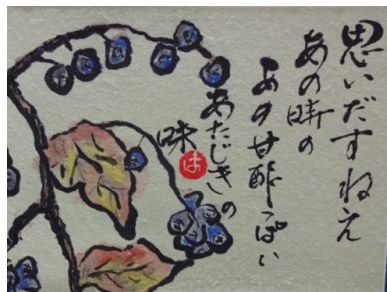 思いだすねえ
あの時の
あの甘酢っぱい
あたじきの
味
は